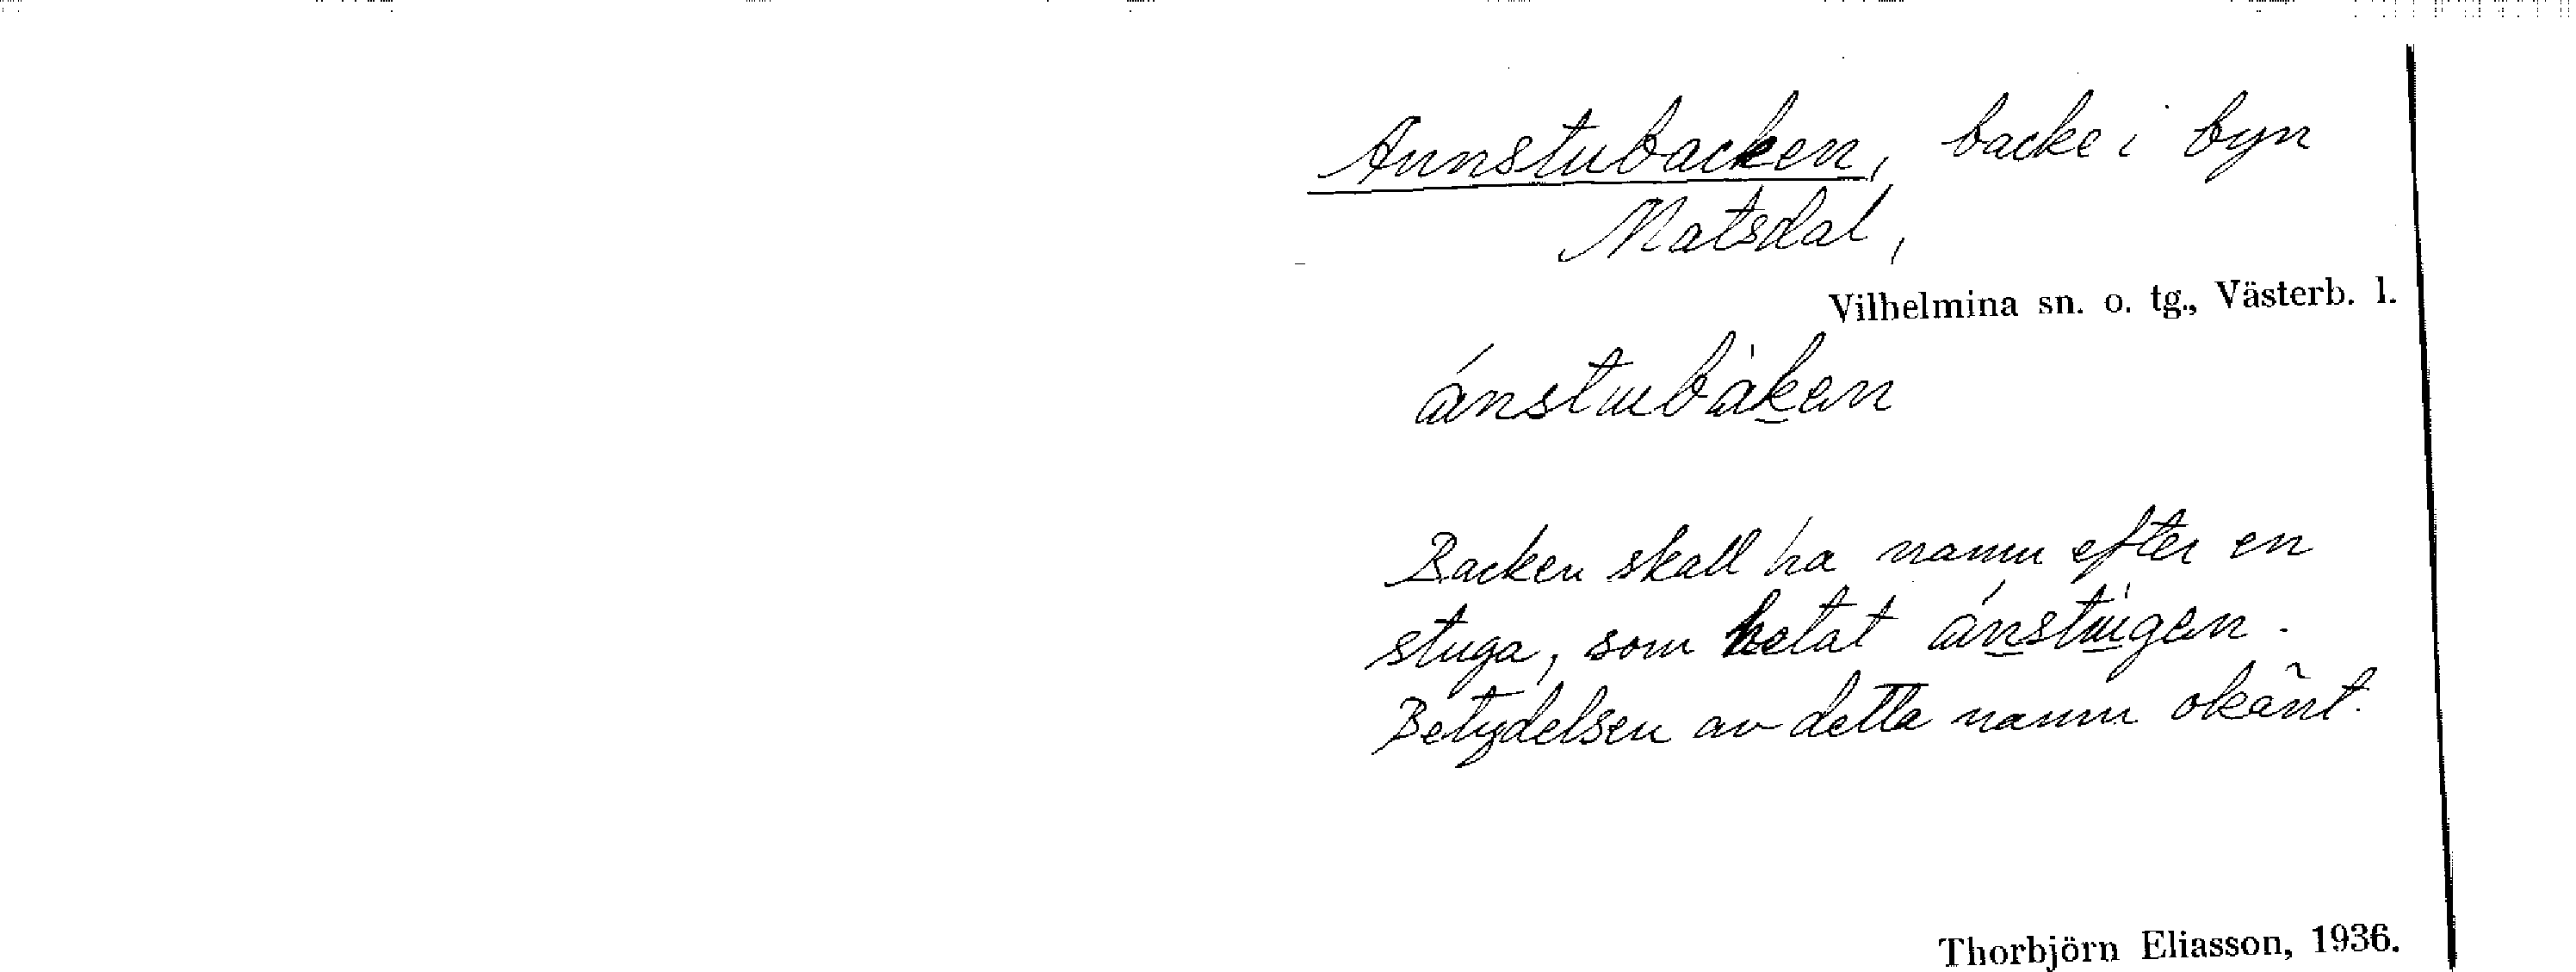 Annstubacken, backe i byn
Matsdal,
Vilhelmina sn. o. tg., Västerb. l.
ánstubàken
Backen skall ha namn efter en
stuga, som hetat ánstùgen.
Betydelsen av detta namn okänt.
Thorbjörn Eliasson, 1936.